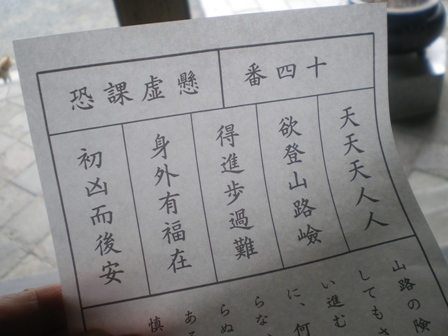 十四番
懸虚課恐
天天天人人
欲登山路嶮
得進歩過難
身外有福在
初凶而後安
山路の険
してもさ
い進む
に、何
らな
らぬ
ある
慎